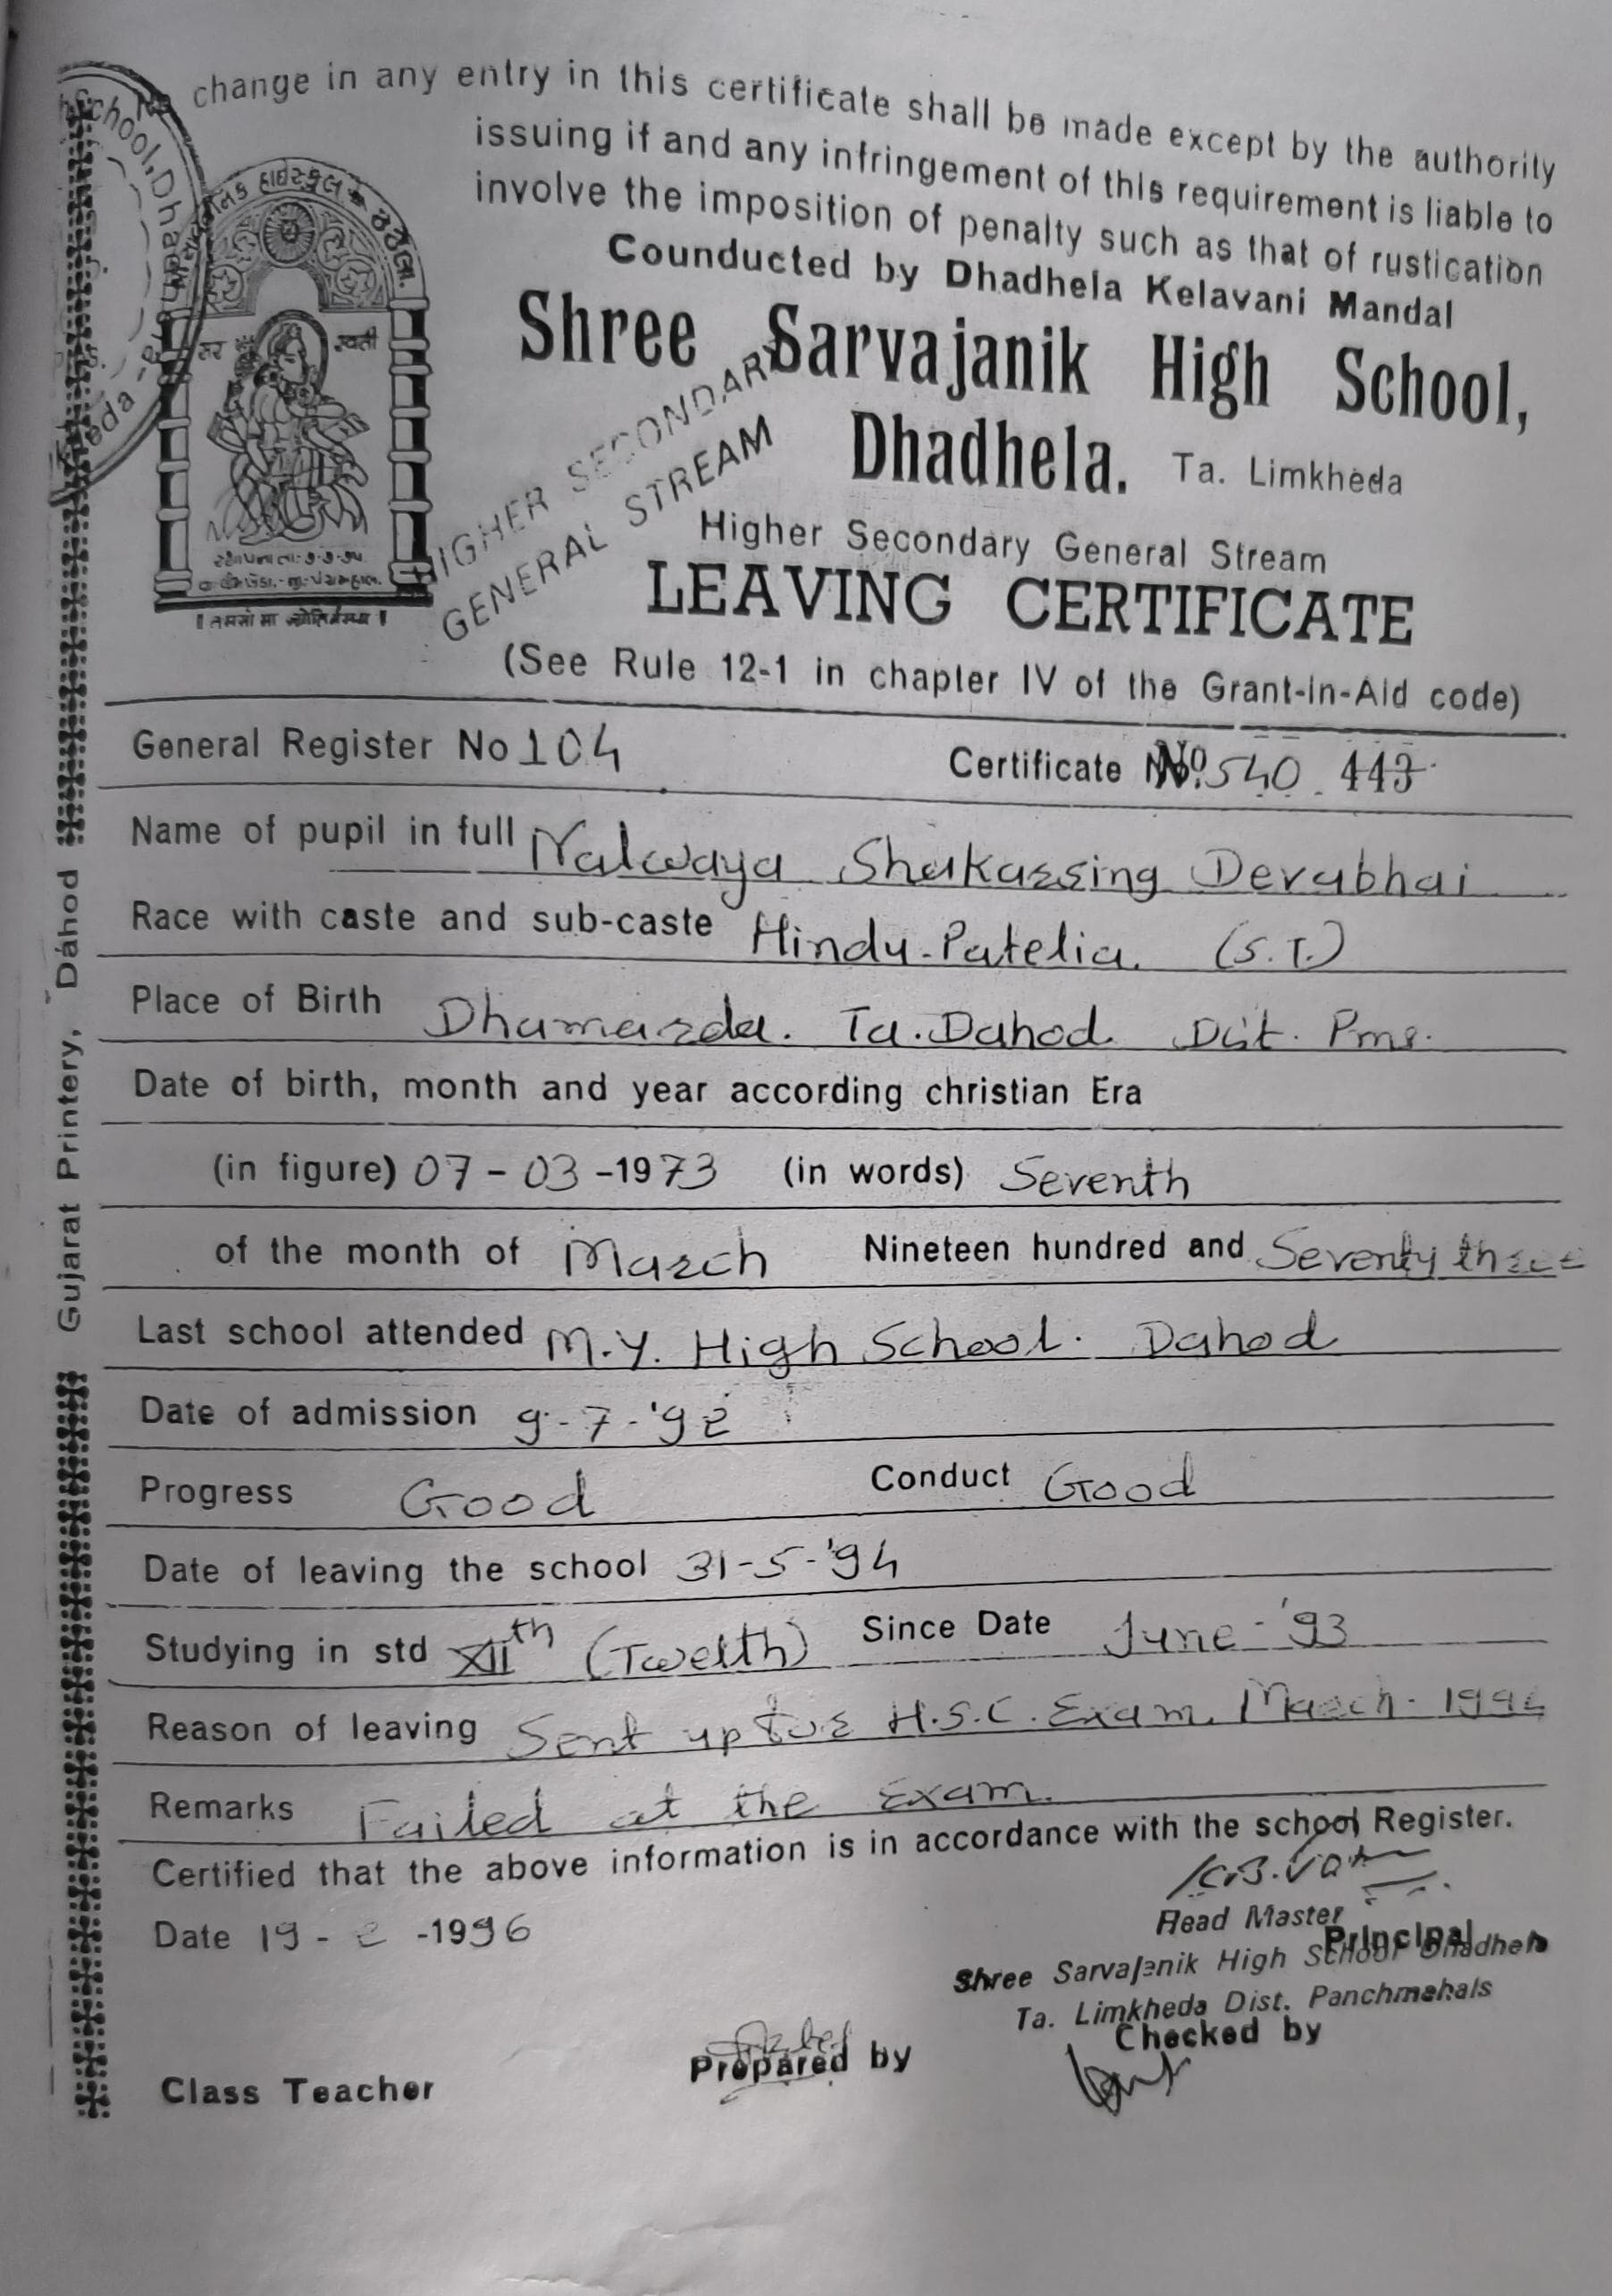 No change in any entry in this certificate shall be made except by the authority
issuing if and any infringement of this requirement is liable to
involve the imposition of penalty such as that of rustication
Counducted by Dhadhela Kelavani Mandal
Shree Sarvajanik High School,
Dhadhela. Ta. Limkheda
HIGHER SECONDARY
GENERAL STREAM
Higher Secondary General Stream
LEAVING CERTIFICATE
(See Rule 12-1 in chapter IV of the Grant-in-Aid code)
General Register No 104 Certificate No. 540 443
Name of pupil in full Nalwaya Shakarsing Devabhai
Race with caste and sub-caste Hindu-Patelia. (S.T.)
Place of Birth Dhamarda. Ta. Dahod. Dist. Pms.
Date of birth, month and year according christian Era
(in figure) 07-03-1973 (in words) Seventh
of the month of March Nineteen hundred and Seventy three
Last school attended M.Y. High School. Dahod
Date of admission 9-7-'92
Progress Good Conduct Good
Date of leaving the school 31-5-'94
Studying in std XIIth (Twelth) Since Date June-'93
Reason of leaving Sent up for H.S.C. Exam. March-1994
Remarks Failed at the Exam.
Certified that the above information is in accordance with the school Register.
Date 19-2-1996
Head Master
Principal
Shree Sarvajanik High School Dhadhela
Ta. Limkheda Dist. Panchmahals
Class Teacher Prepared by Checked by
Gujarat Printery, Dahod